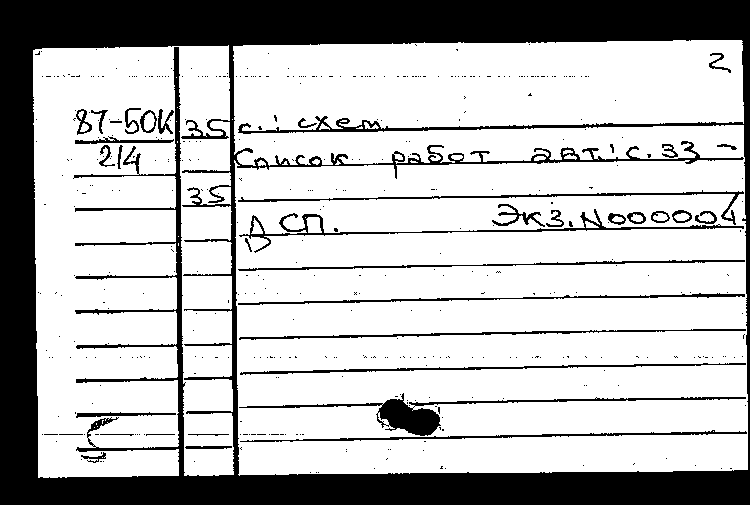 2
87-50К 35 с.: схем.
2/4 Список работ авт.: с. 33 -
35.
ДСП. Экз. N000004.